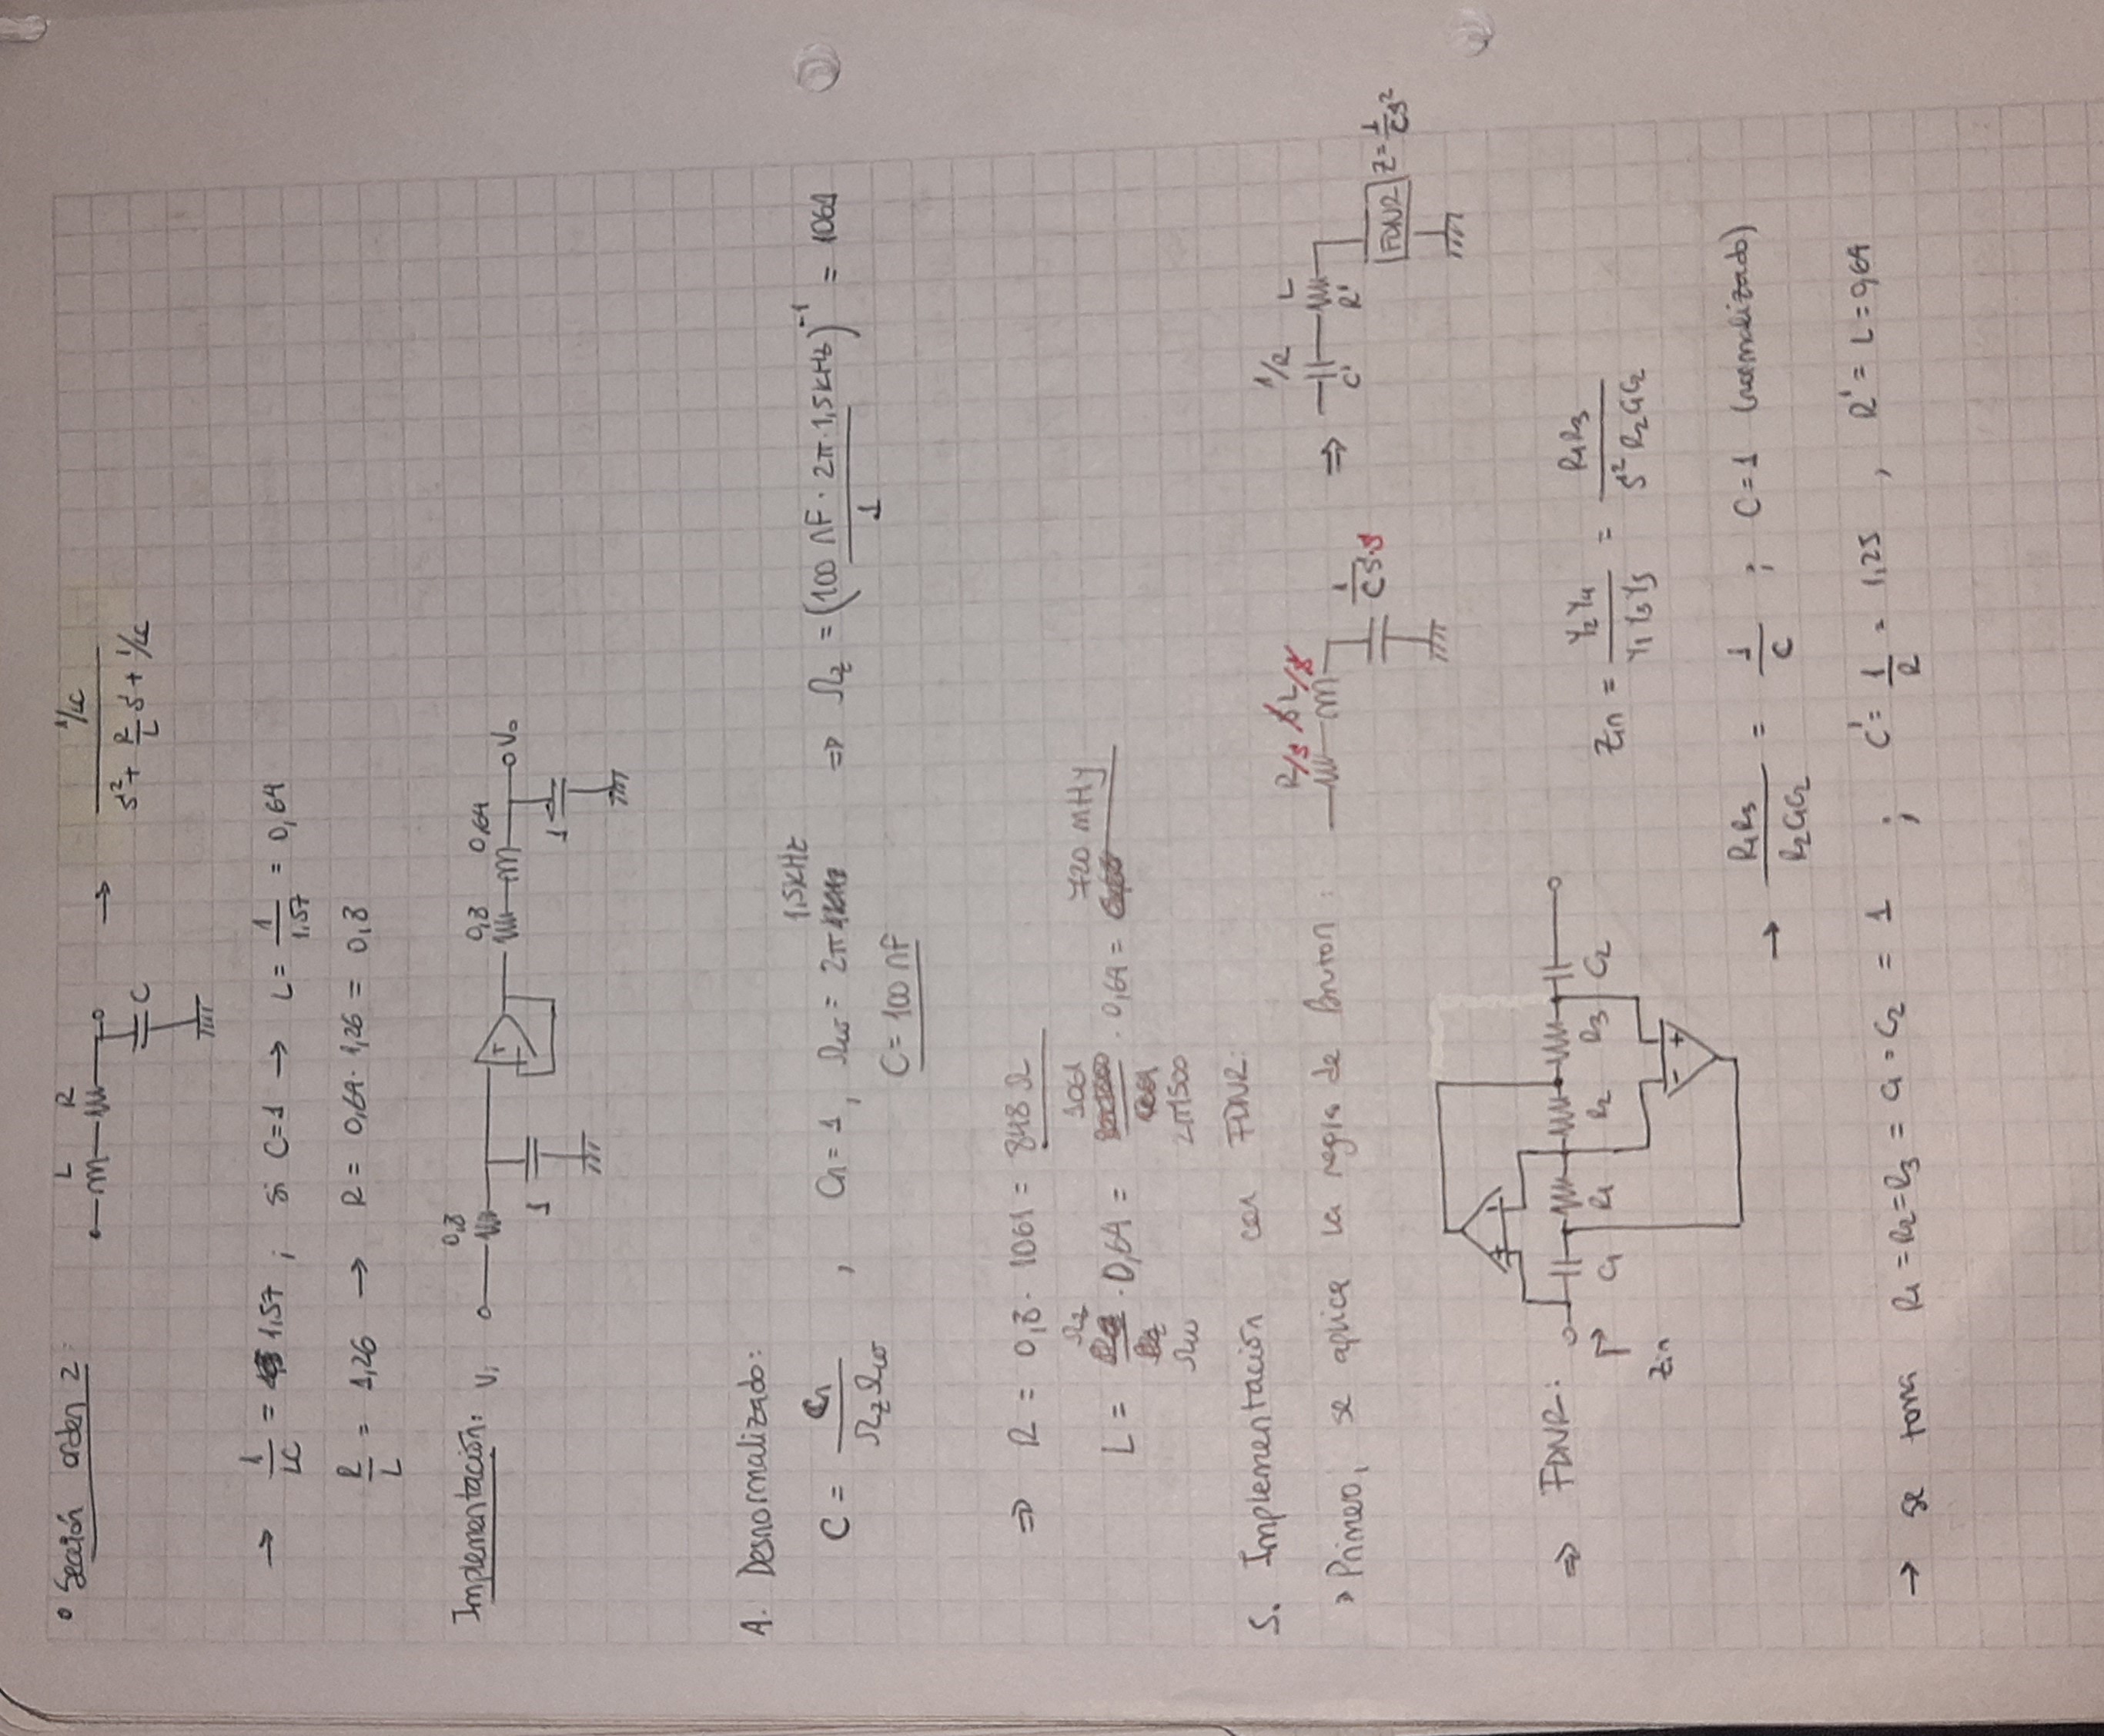 • Sección orden 2:
L R C → 1/LC / (S² + R/L S + 1/LC)
→ 1/LC = 1,57 ; si C=1 → L = 1/1,57 = 0,64
R/L = 1,26 → R = 0,64 · 1,26 = 0,8
Implementación: Vi 0,8 1 + - 0,8 0,64 1 Vo
4. Desnormalizado:
C = Cn / (Ωz Ωω) , Cn = 1, Ωω = 2π 1,5KHz ⇒ Ωz = (100 nF · 2π · 1,5KHz / 1)⁻¹ = 1061
C = 100 nF
⇒ R = 0,8 · 1061 = 848 Ω
L = Ωz/Ωω · 0,64 = 1061/2π1500 · 0,64 = 720 mHy
5. Implementación con FDNR:
> Primero, se aplica la regla de Bruton : R/s sL/s 1/CS·s ⇒ 1/R C' L R' FDNR Z = 1/CS²
⇒ FDNR: + - C1 R1 R2 R3 C2 - +
Zin
Zin = Y2 Y4 / Y1 Y3 Y5 = R1R3 / S² R2C1C2
→ R1R3 / R2C1C2 = 1/C ; C=1 (normalizado)
→ se toma R1 = R2 = R3 = C1 = C2 = 1 ; C' = 1/R = 1,25 , R' = L = 0,64